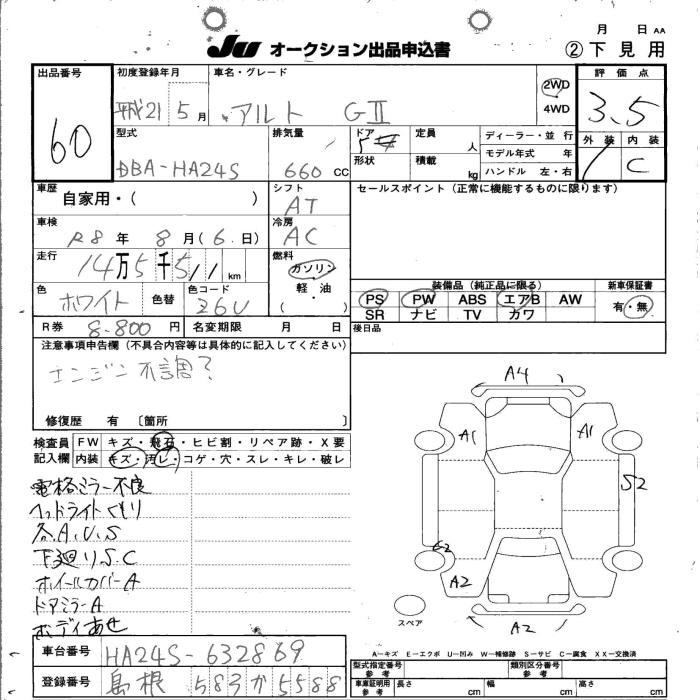 月 日 AA
JU オークション出品申込書 ②下見用
出品番号 60
初度登録年月 平成21 5月
車名・グレード アルト GⅡ
2WD
4WD
評価点 3.5
外装 内装 C
型式 DBA-HA24S
排気量 660 CC
ドア 5
形状
定員 人
積載 kg
ディーラー・並行
モデル年式 年
ハンドル 左・右
車歴 自家用・( )
シフト AT
セールスポイント(正常に機能するものに限ります)
車検 R8年 8月(6日)
冷房 AC
走行 14万5千511 km
燃料 ガソリン
軽・油
色 ホワイト 色替
色コード 26U
装備品(純正品に限る) 新車保証書
PS PW ABS エアB AW 有・無
SR ナビ TV カワ
R券 8.800円 名変期限 月 日
後日品
注意事項申告欄(不具合内容等は具体的に記入してください)
エンジン不調?
修復歴 有 〔箇所 〕
検査員 FW キズ・飛石・ヒビ割・リペア跡・X要
記入欄 内装 キズ・汚レ・コゲ・穴・スレ・キレ・破レ
電格ミラー不良
ヘッドライトくもり
各A.U.S
下廻りS.C
ホイールカバーA
ドアミラーA
ボディあせ
A4
A1 A1
S2
G2
A2
A2
スペア
A-キズ E-エクボ U-凹み W-補修跡 S-サビ C-腐食 XX-交換済
車台番号 HA24S-632869
登録番号 島根 583か5588
型式指定番号 参考
類別区分番号 参考
車庫証明用 参考 長さ cm 幅 cm 高さ cm